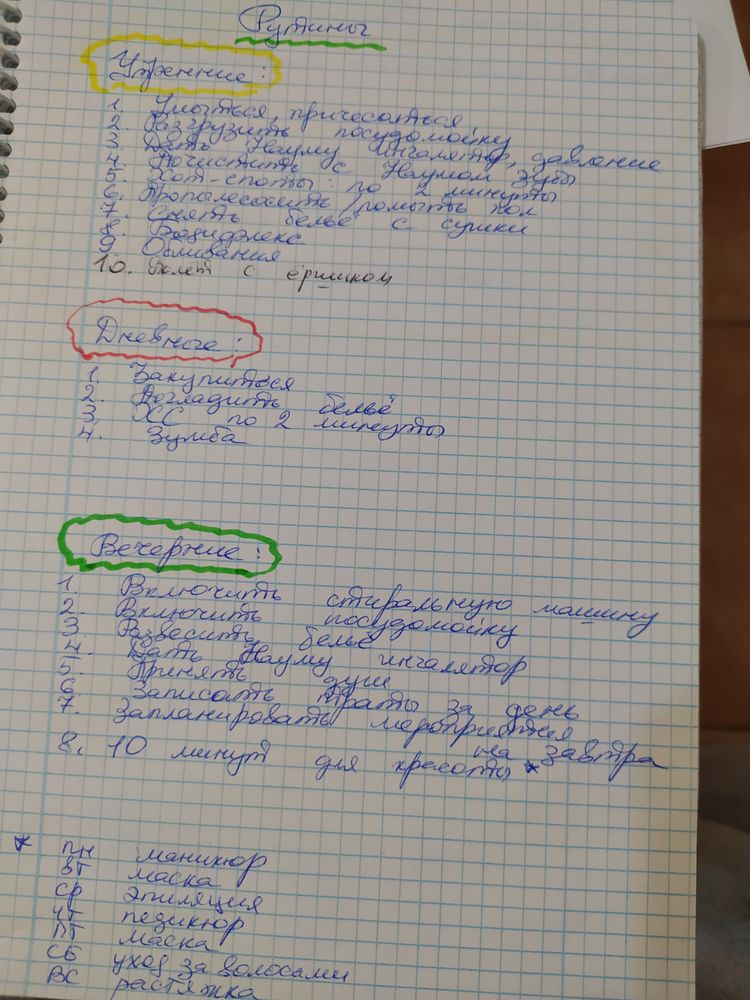 Рутины
Утренние:
1. Умыться, причесаться
2. Разгрузить посудомойку
3. Дать Науму ингалятор, давление
4. Почистить с Наумом зубы
5. Хот-споты: по 2 минуты
6. Пропылесосить/помыть пол
7. Снять бельё с сушки
8. Бодифлекс
9. Обливания
10. с ёршиком
Дневные:
1. Закупиться
2. Погладить бельё
3. ХС по 2 минуты
4. Зумба
Вечерние:
1. Включить стиральную машину
2. Включить посудомойку
3. Развесить бельё
4. Дать Науму ингалятор
5. Принять душ
6. Записать траты за день
7. Запланировать мероприятия
на завтра
8. 10 минут для красоты *
* ПН маникюр
ВТ маска
СР эпиляция
ЧТ педикюр
ПТ маска
СБ уход за волосами
ВС растяжка